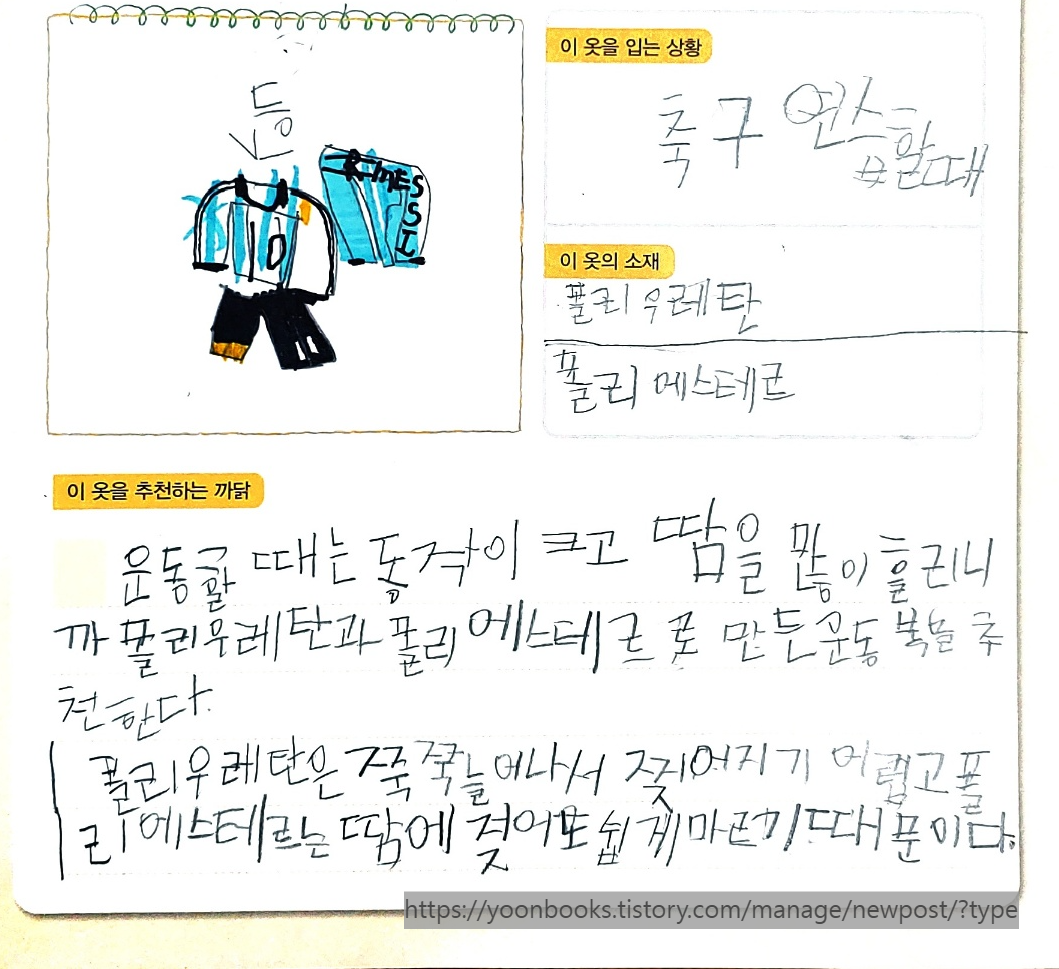 등
10
MESSI
이 옷을 입는 상황
축구 연스
할때
이 옷의 소재
폴리우레탄
폴리에스테르
이 옷을 추천하는 까닭
운동할 때는 동작이 크고 땀을 많이 흘리니
까 폴리우레탄과 폴리에스테르로 만든 운동복을 추
천한다.
폴리우레탄은 쭉쭉 늘어나서 찢어지기 어렵고 폴
리에스테르는 땀에 젖어도 쉽게 마르기 때문이다.
https://yoonbooks.tistory.com/manage/newpost/?type